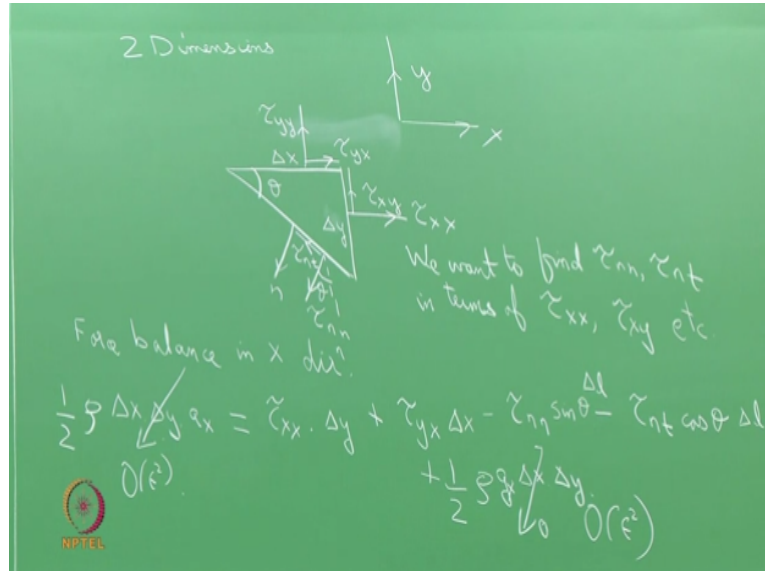 2 Dimensions
y
x
τyy
Δx τyx
θ
τxy τxx
Δy
τnt
n θ
τnn
We want to find τnn, τnt
in terms of τxx, τxy etc
Force balance in x dirⁿ.
1/2 ρ Δx Δy ax = τxx . Δy + τyx Δx - τnn sinθ Δl - τnt cosθ Δl
O(ε²).
+ 1/2 ρ gx Δx Δy.
0 O(ε²)
NPTEL